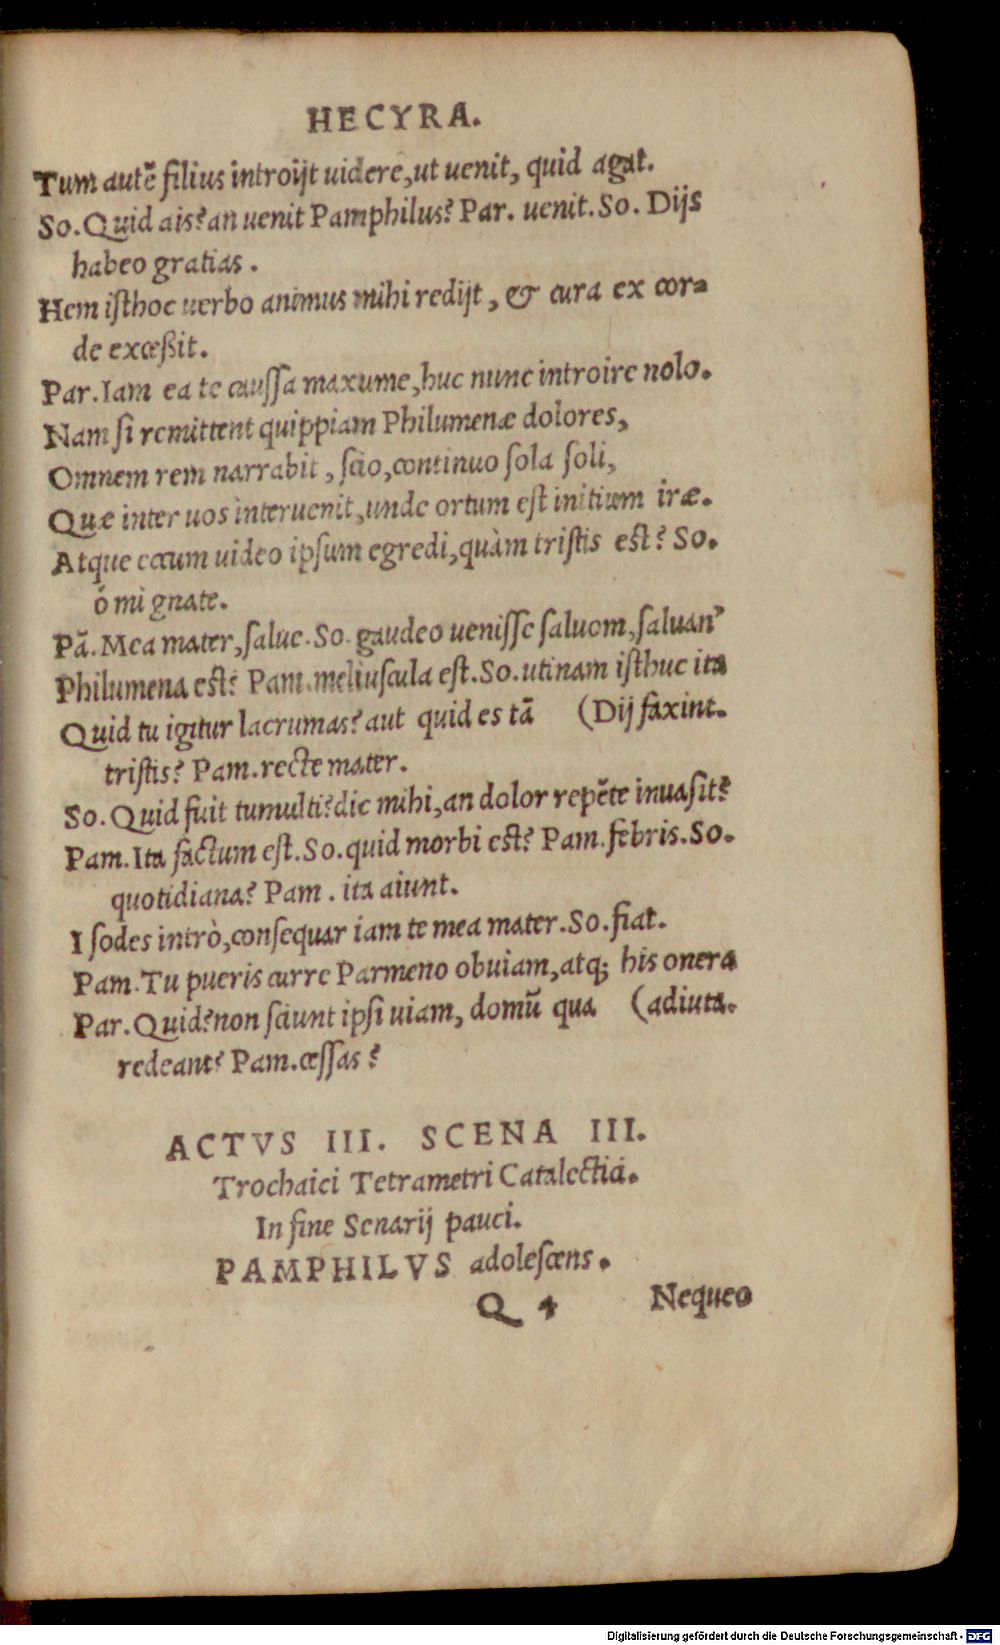 HECYRA.
Tum autē filius introijt uidere, ut uenit, quid agat.
So. Quid ais? an uenit Pamphilus? Par. uenit. So. Dijs
habeo gratias.
Hem isthoc uerbo animus mihi redijt, & cura ex cor-
de excessit.
Par. Iam ea te caussa maxume, huc nunc introire nolo.
Nam si remittent quippiam Philumenæ dolores,
Omnem rem narrabit, scio, continuo sola soli,
Quæ inter uos interuenit, unde ortum est initium iræ.
Atque eccum uideo ipsum egredi, quàm tristis est? So.
ô mi gnate.
Pā. Mea mater, salue. So. gaudeo uenisse saluom, saluan'
Philumena est? Pam. meliuscula est. So. utinam isthuc ita
Quid tu igitur lacrumas? aut quid es tā (Dij faxint.
tristis? Pam. recte mater.
So. Quid fuit tumulti? dic mihi, an dolor repēte inuasit?
Pam. Ita factum est. So. quid morbi est? Pam. febris. So.
quotidiana? Pam. ita aiunt.
I sodes intrò, consequar iam te mea mater. So. fiat.
Pam. Tu pueris curre Parmeno obuiam, atq; his onera
Par. Quid? non sciunt ipsi uiam, domū qua (adiuta.
redeant? Pam. cessas?
ACTVS III. SCENA III.
Trochaici Tetrametri Catalectici.
In fine Senarij pauci.
PAMPHILVS adolescens.
Q 4 Nequeo
Digitalisierung gefördert durch die Deutsche Forschungsgemeinschaft - DFG